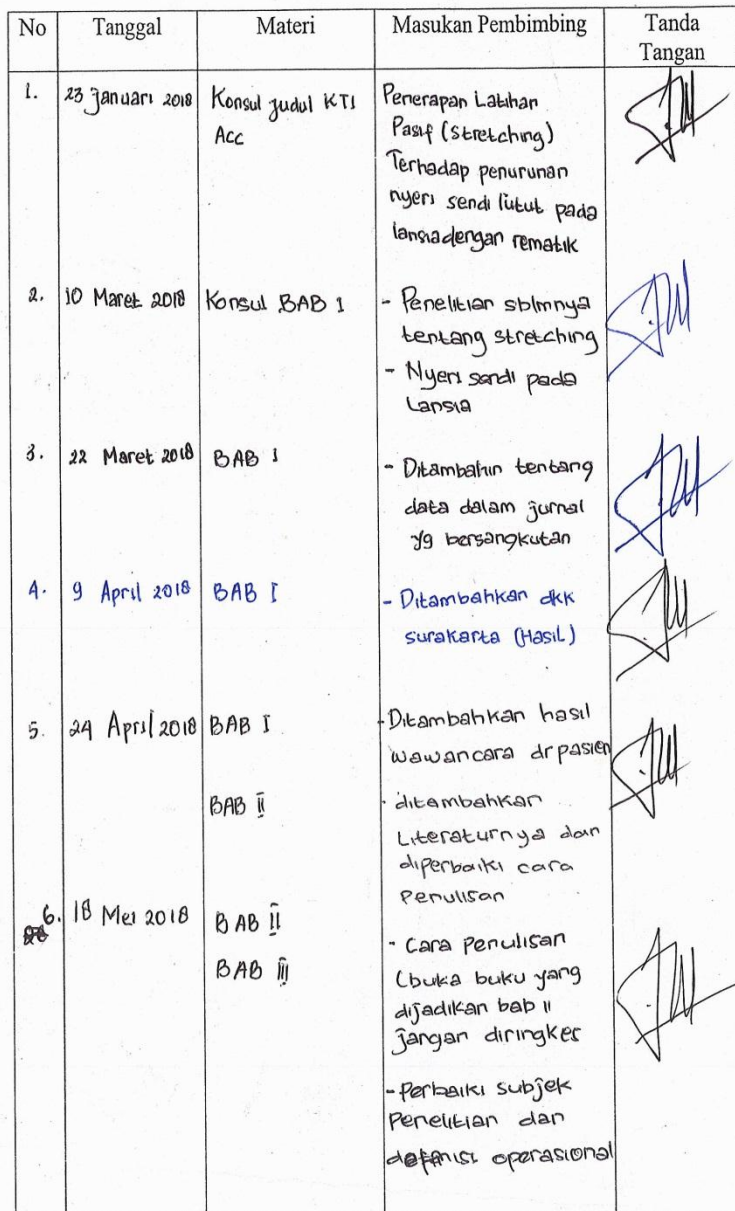 No Tanggal Materi Masukan Pembimbing Tanda Tangan
1. 23 Januari 2018 Konsul judul KTI Penerapan Latihan
Acc Pasif (Stretching)
Terhadap penurunan
nyeri sendi lutut pada
lansia dengan rematik
2. 10 Maret 2018 Konsul BAB I - Penelitian sblmnya
tentang stretching
- Nyeri sendi pada
Lansia
3. 22 Maret 2018 BAB I - Ditambahin tentang
data dalam jurnal
yg bersangkutan
4. 9 April 2018 BAB I - Ditambahkan dkk
surakarta (Hasil)
5. 24 April 2018 BAB I - Ditambahkan hasil
wawancara dr pasien
BAB II - ditambahkan
Literaturnya dan
diperbaiki cara
Penulisan
6. 18 Mei 2018 BAB II - Cara penulisan
BAB III (buka buku yang
dijadikan bab II
jangan diringkes
- Perbaiki subjek
Penelitian dan
definisi operasional